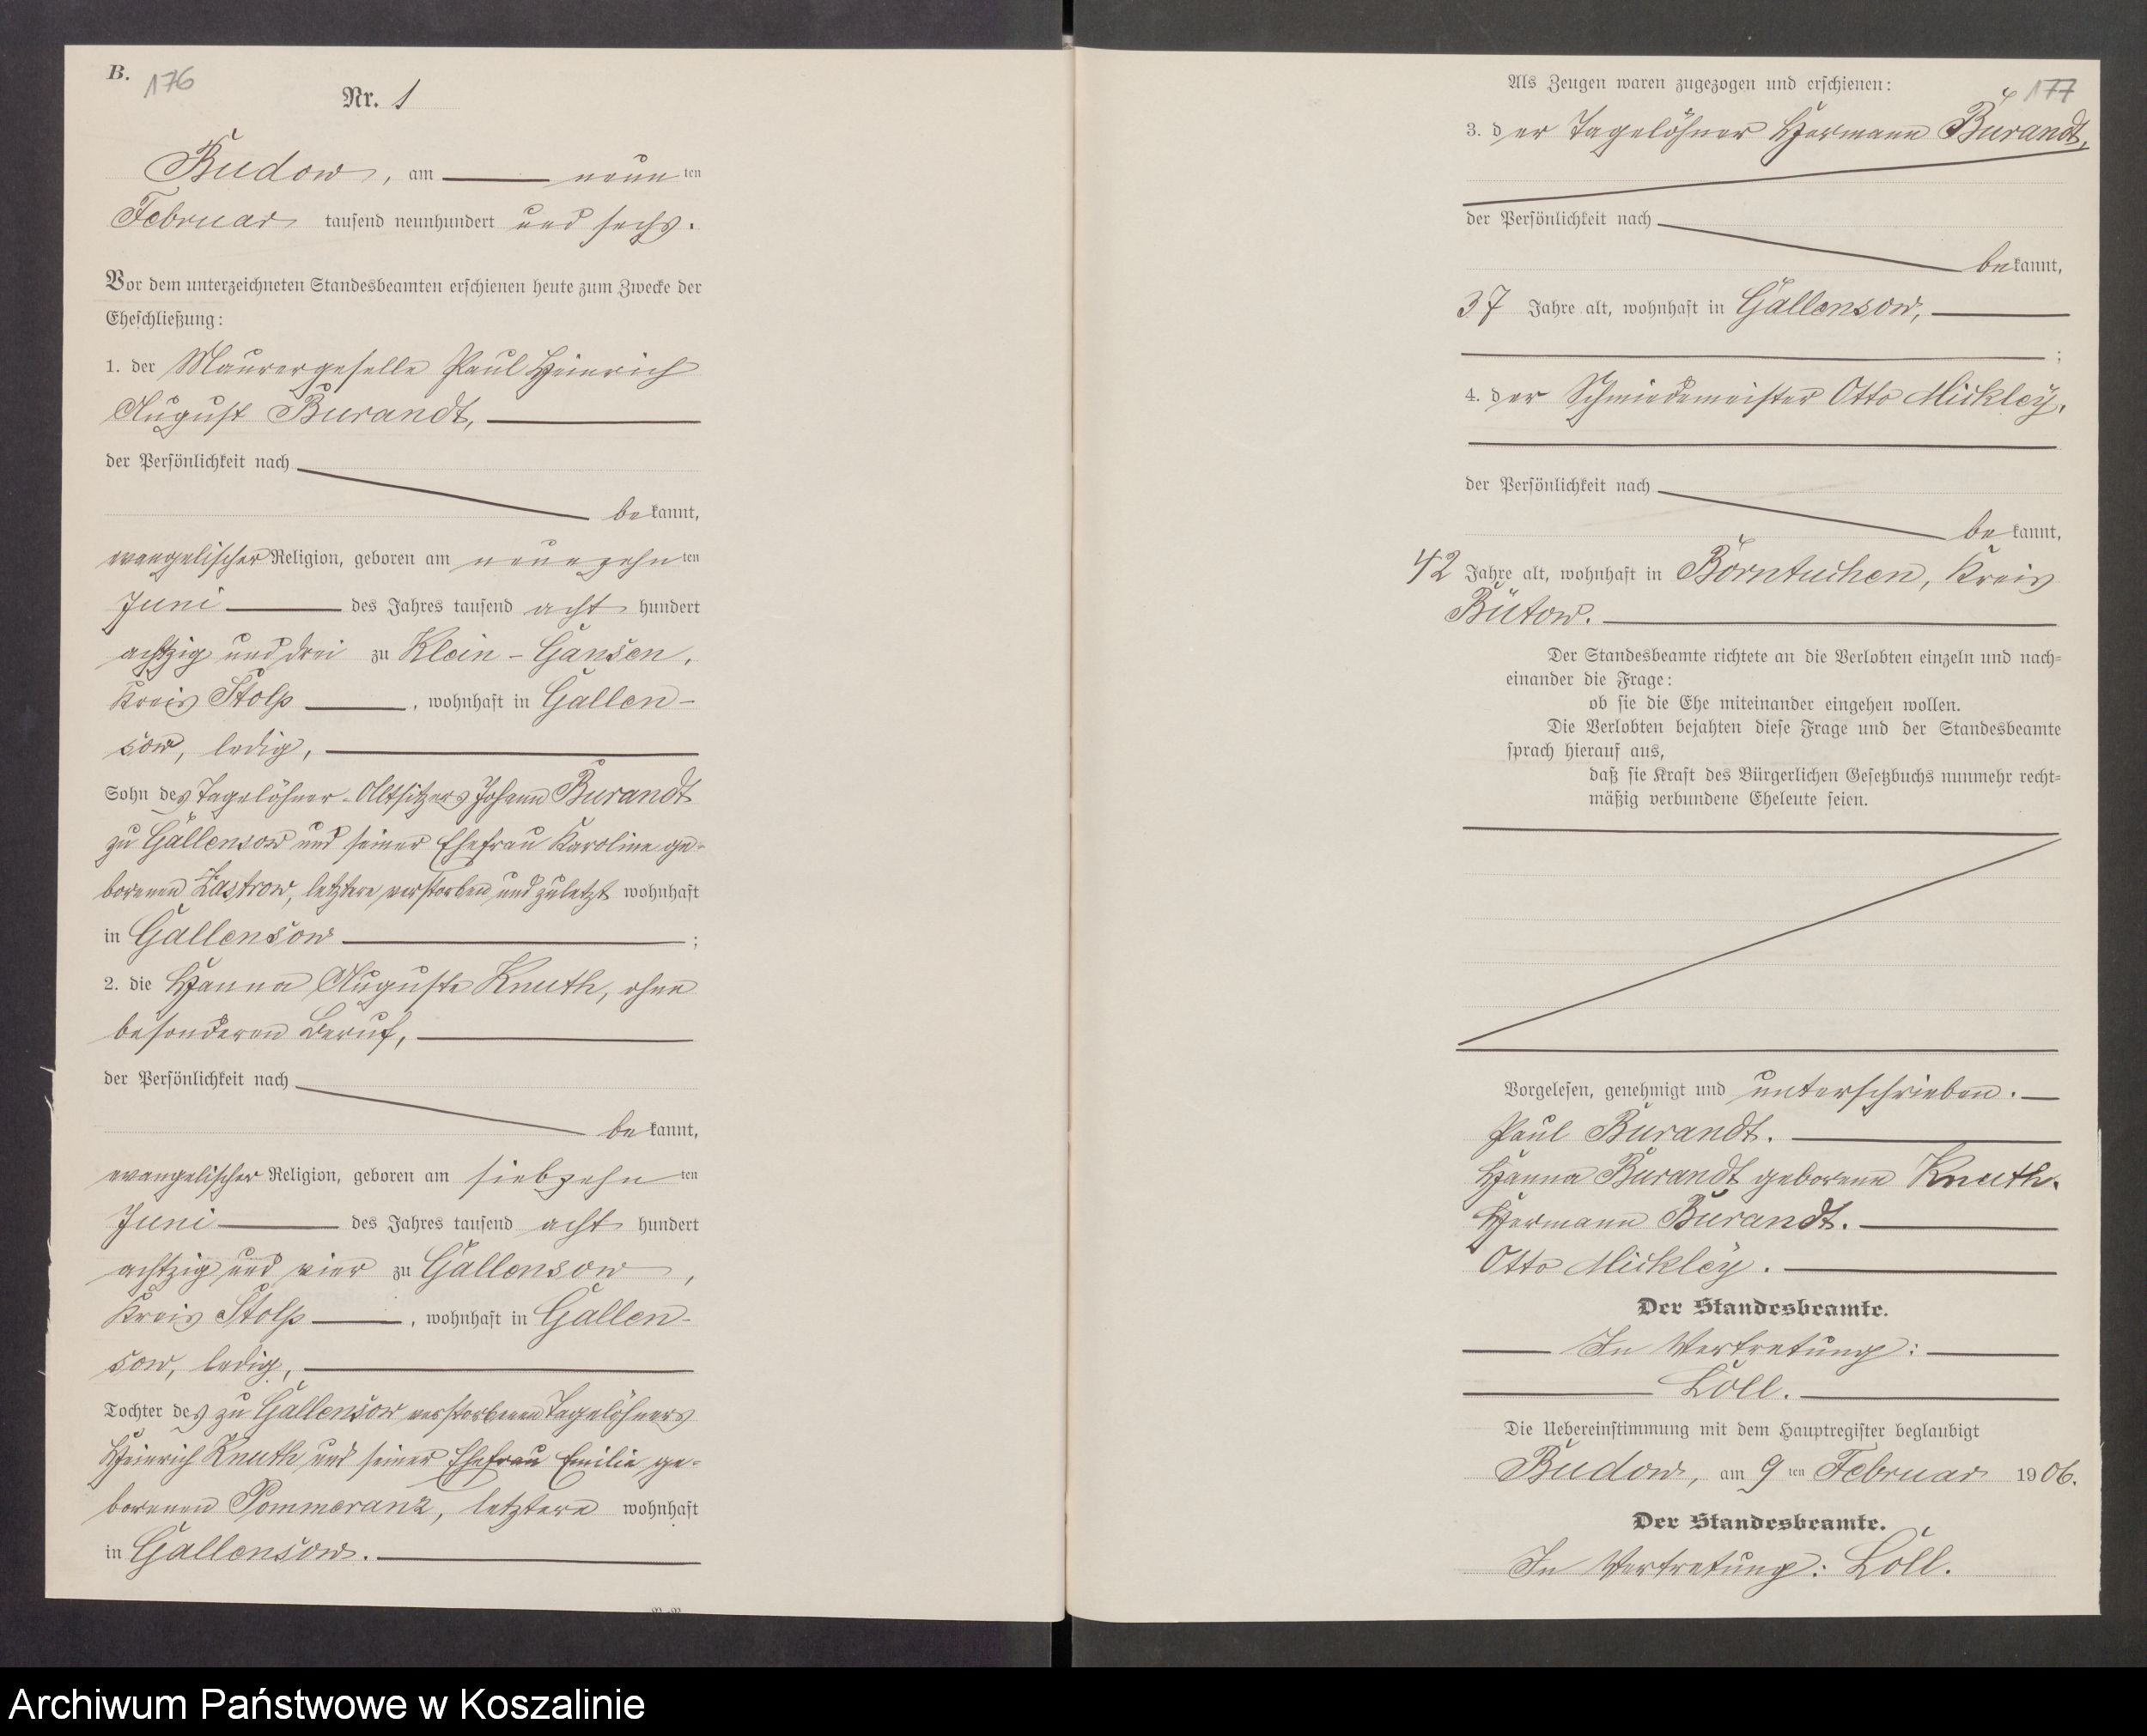 B.
176
Nr. 1
Budow, am neunten
Februar tausend neunhundert und sechs.
Vor dem unterzeichneten Standesbeamten erschienen heute zum Zwecke der
Eheschließung:
1. der Maurergeselle Paul Heinrich
August Burandt,
der Persönlichkeit nach
bekannt,
evangelischer Religion, geboren am neunzehnten
Juni des Jahres tausend acht hundert
achtzig und drei zu Klein-Gansen,
Kreis Stolp, wohnhaft in Gallen-
sow, ledig,
Sohn des Tagelöhner-Altsitzers Johann Burandt
zu Gallensow und seiner Ehefrau Karoline ge-
borenen Zastrow, letztere verstorben und zuletzt wohnhaft
in Gallensow;
2. die Hanna Auguste Knuth, ohne
besonderen Beruf,
der Persönlichkeit nach
bekannt,
evangelischer Religion, geboren am siebzehnten
Juni des Jahres tausend acht hundert
achtzig und vier zu Gallensow,
Kreis Stolp, wohnhaft in Gallen-
sow, ledig,
Tochter des zu Gallensow verstorbenen Tagelöhners
Heinrich Knuth und seiner Ehefrau Emilie ge-
borenen Pommeranz, letztere wohnhaft
in Gallensow.
177
Als Zeugen waren zugezogen und erschienen:
3. der Tagelöhner Hermann Burandt,
der Persönlichkeit nach
bekannt,
37 Jahre alt, wohnhaft in Gallensow,
;
4. der Schmiedemeister Otto Mickley,
der Persönlichkeit nach
bekannt,
42 Jahre alt, wohnhaft in Borntuchen, Kreis
Bütow.
Der Standesbeamte richtete an die Verlobten einzeln und nach-
einander die Frage:
ob sie die Ehe miteinander eingehen wollen.
Die Verlobten bejahten diese Frage und der Standesbeamte
sprach hierauf aus,
daß sie kraft des Bürgerlichen Gesetzbuchs nunmehr recht-
mäßig verbundene Eheleute seien.
Vorgelesen, genehmigt und unterschrieben.
Paul Burandt.
Hanna Burandt geborene Knuth.
Hermann Burandt.
Otto Mickley.
Der Standesbeamte.
In Vertretung:
Loll.
Die Uebereinstimmung mit dem Hauptregister beglaubigt
Budow, am 9ten Februar 1906.
Der Standesbeamte.
In Vertretung: Loll.
Archiwum Państwowe w Koszalinie